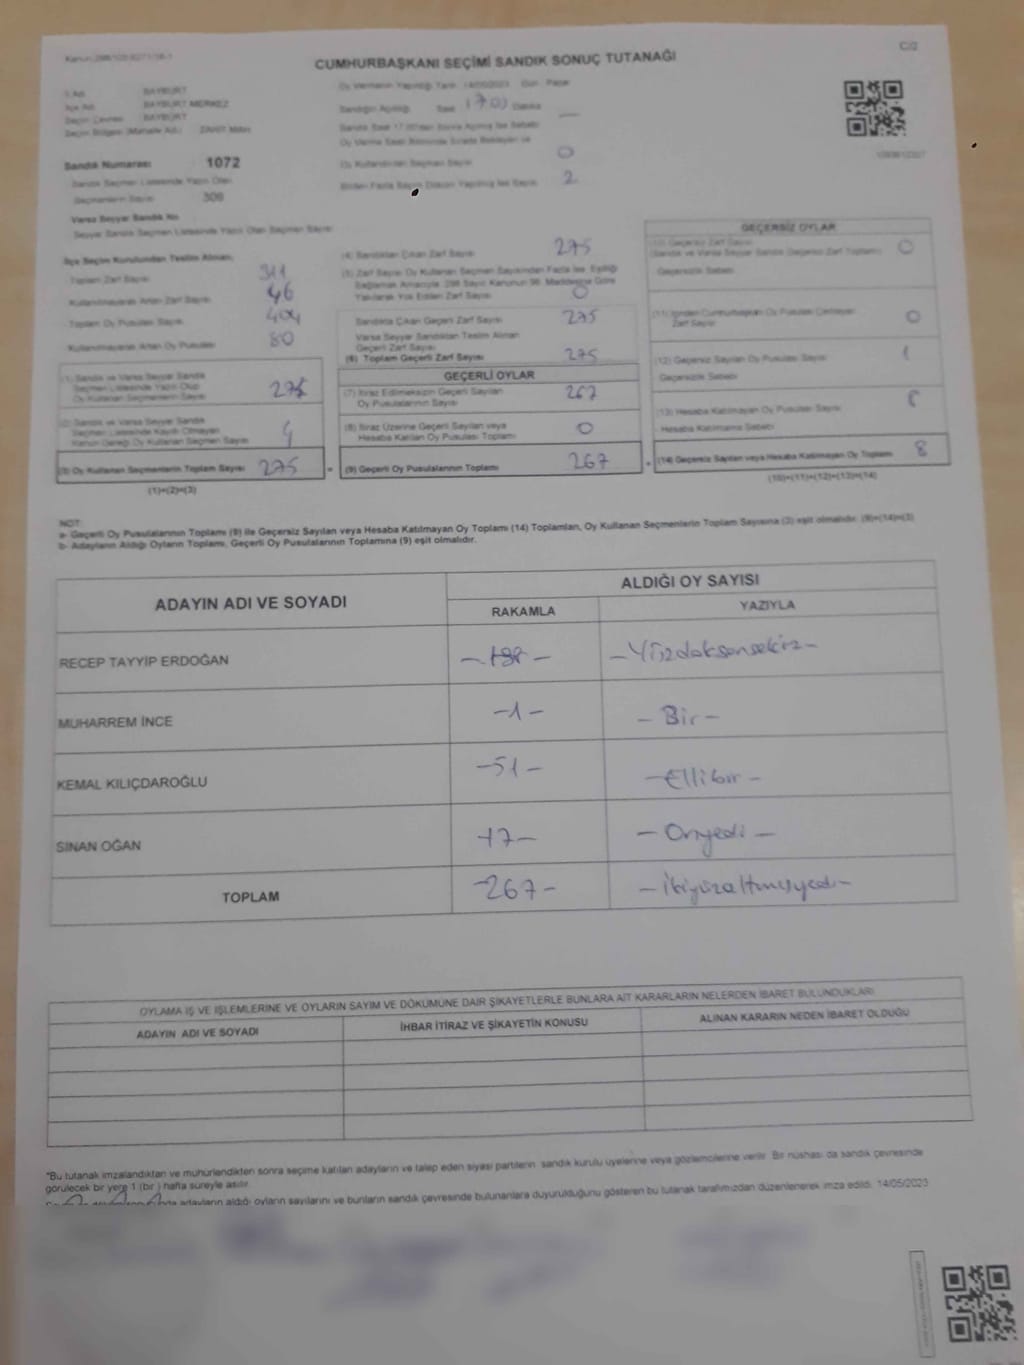 C/2
CUMHURBAŞKANI SEÇİMİ SANDIK SONUÇ TUTANAĞI
İl Adı : BAYBURT
İlçe Adı : BAYBURT MERKEZ
Seçim Çevresi : BAYBURT
Seçim Bölgesi (Mahalle Adı) :
Sandık Numarası 1072
Sandık Seçmen Listesinde Yazılı Olan
Seçmenlerin Sayısı
Varsa Seyyar Sandık No
Seyyar Sandık Seçmen Listesinde Yazılı Olan Seçmen Sayısı
Oy Vermenin Yapıldığı Tarih 14/05/2023 Gün Pazar
Sandığın Açıldığı Saat Dakika
Oy Kullandırılan Seçmen Sayısı 0
Birden Fazla Sayım Döküm Yapılmış İse Sayısı 2
İlçe Seçim Kurulundan Teslim Alınan;
Toplam Zarf Sayısı 311
Kullanılmayarak Artan Zarf Sayısı 46
Toplam Oy Pusulası Sayısı 404
Kullanılmayarak Artan Oy Pusulası 80
(1) Sandık ve Varsa Seyyar Sandık
Seçmen Listesinde Yazılı Olup
Oy Kullanan Seçmenlerin Sayısı
(2) Sandık ve Varsa Seyyar Sandık
Seçmen Listesinde Kayıtlı Olmayan
Kanun Gereği Oy Kullanan Seçmen Sayısı 4
(3) Oy Kullanan Seçmenlerin Toplam Sayısı 275
(1)+(2)=(3)
(4) Sandıktan Çıkan Zarf Sayısı 275
(5) Zarf Sayısı Oy Kullanan Seçmen Sayısından Fazla İse, Eşitliği
Sağlamak Amacıyla, 298 Sayılı Kanunun 98. Maddesine Göre
Yakılarak Yok Edilen Zarf Sayısı 0
Sandıkta Çıkan Geçerli Zarf Sayısı 275
Varsa Seyyar Sandıktan Teslim Alınan
Geçerli Zarf Sayısı
(6) Toplam Geçerli Zarf Sayısı 275
GEÇERLİ OYLAR
(7) İtiraz Edilmeksizin Geçerli Sayılan
Oy Pusulalarının Sayısı 267
(8) İtiraz Üzerine Geçerli Sayılan veya
Hesaba Katılan Oy Pusulası Toplamı 0
(9) Geçerli Oy Pusulalarının Toplamı 267
GEÇERSİZ OYLAR
(10) Geçersiz Zarf Sayısı 0
(Sandık ve Varsa Seyyar Sandık Geçersiz Zarf Toplamı)
Geçersizlik Sebebi
(11) İçinden Cumhurbaşkanı Oy Pusulası Çıkmayan
Zarf Sayısı 0
(12) Geçersiz Sayılan Oy Pusulası Sayısı
Geçersizlik Sebebi
(13) Hesaba Katılmayan Oy Pusulası Sayısı
Hesaba Katılmama Sebebi
(14) Geçersiz Sayılan veya Hesaba Katılmayan Oy Toplamı 8
(10)+(11)+(12)+(13)=(14)
NOT:
a- Geçerli Oy Pusulalarının Toplamı (9) ile Geçersiz Sayılan veya Hesaba Katılmayan Oy Toplamı (14) Toplamları, Oy Kullanan Seçmenlerin Toplam Sayısına (3) eşit olmalıdır. (9)+(14)=(3)
b- Adayların Aldığı Oyların Toplamı, Geçerli Oy Pusulalarının Toplamına (9) eşit olmalıdır.
ADAYIN ADI VE SOYADI ALDIĞI OY SAYISI
RAKAMLA YAZIYLA
RECEP TAYYİP ERDOĞAN -198- -Yüzdoksansekiz-
MUHARREM İNCE -1- -Bir-
KEMAL KILIÇDAROĞLU -51- -Ellibir-
SİNAN OĞAN -17- -Onyedi-
TOPLAM -267- -İkiyüzaltmışyedi-
OYLAMA İŞ VE İŞLEMLERİNE VE OYLARIN SAYIM VE DÖKÜMÜNE DAİR ŞİKAYETLERLE BUNLARA AİT KARARLARIN NELERDEN İBARET BULUNDUKLARI
ADAYIN ADI VE SOYADI İHBAR İTİRAZ VE ŞİKAYETİN KONUSU ALINAN KARARIN NEDEN İBARET OLDUĞU
*Bu tutanak imzalandıktan ve mühürlendikten sonra seçime katılan adayların ve talep eden siyasi partilerin sandık kurulu üyelerine veya gözlemcilerine verilir. Bir nüshası da sandık çevresinde
görülecek bir yere 1 (bir ) hafta süreyle asılır.
adayların aldığı oyların sayılarını ve bunların sandık çevresinde bulunanlara duyurulduğunu gösteren bu tutanak tarafımızdan düzenlenerek imza edildi. 14/05/2023